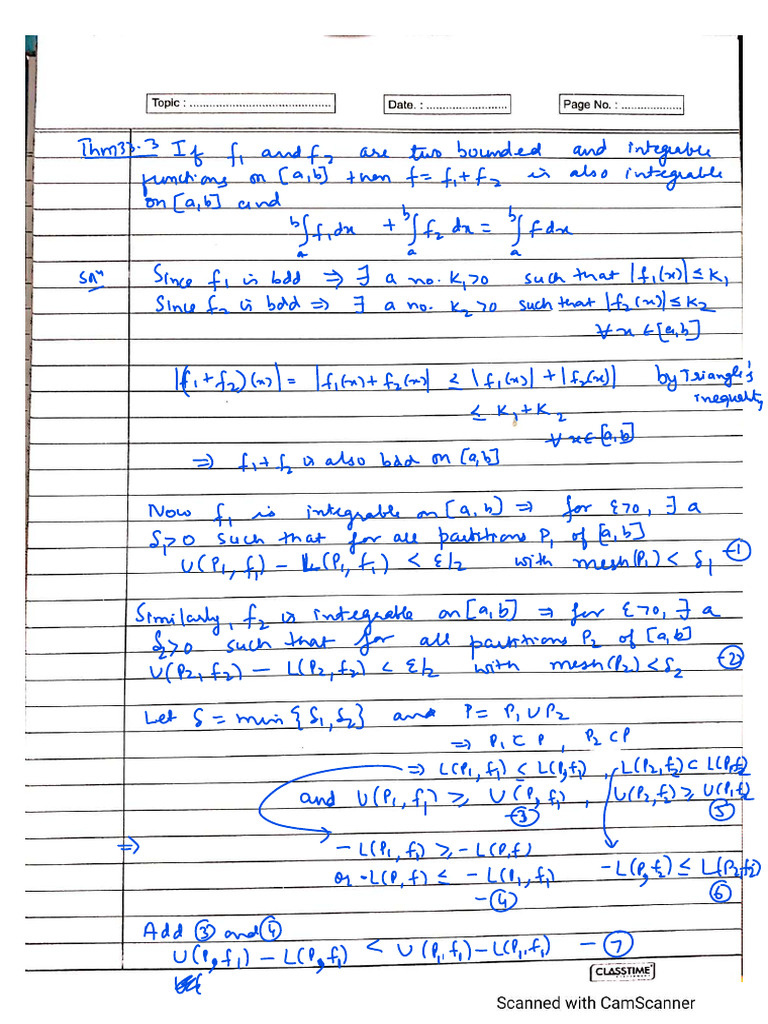 Topic : ........................................ Date. : ........................ Page No. : ..................
Thm 33.3 If f₁ and f₂ are two bounded and integrable
functions on [a,b] then f = f₁+f₂ is also integrable
on [a,b] and
ᵇ∫ₐ f₁dx + ᵇ∫ₐ f₂ dx = ᵇ∫ₐ f dx
Solⁿ Since f₁ is bdd ⇒ ∃ a no. K₁>0 such that |f₁(x)| ≤ K₁
Since f₂ is bdd ⇒ ∃ a no. K₂>0 such that |f₂(x)| ≤ K₂
∀ x ∈ [a,b]
|(f₁+f₂)(x)| = |f₁(x)+f₂(x)| ≤ |f₁(x)| + |f₂(x)| by Triangle's
inequality
≤ K₁+K₂
∀ x ∈ [a,b]
⇒ f₁+f₂ is also bdd on [a,b]
Now f₁ is integrable on [a,b] ⇒ for ε>0, ∃ a
δ₁>0 such that for all partitions P₁ of [a,b]
U(P₁, f₁) - L(P₁, f₁) < ε/2 with mesh(P₁) < δ₁ -①
Similarly, f₂ is integrable on [a,b] ⇒ for ε>0, ∃ a
δ₂>0 such that for all partitions P₂ of [a,b]
U(P₂, f₂) - L(P₂, f₂) < ε/2 with mesh(P₂) < δ₂ -②
Let δ = min {δ₁, δ₂} and P = P₁ ∪ P₂
⇒ P₁ ⊂ P , P₂ ⊂ P
⇒ L(P₁, f₁) ≤ L(P, f₁) , L(P₂, f₂) ⊂ L(P, f₂)
and U(P₁, f₁) ≥ U(P, f₁) , U(P₂, f₂) ≥ U(P, f₂)
-③ ⑤
⇒ -L(P₁, f₁) ≥ -L(P, f)
or -L(P, f) ≤ -L(P₁, f₁) -L(P, f₂) ≤ L(P₂, f₂)
-④ ⑥
Add ③ and ④
U(P, f₁) - L(P, f₁) < U(P₁, f₁) - L(P₁, f₁) -⑦
CLASSTIME
Scanned with CamScanner